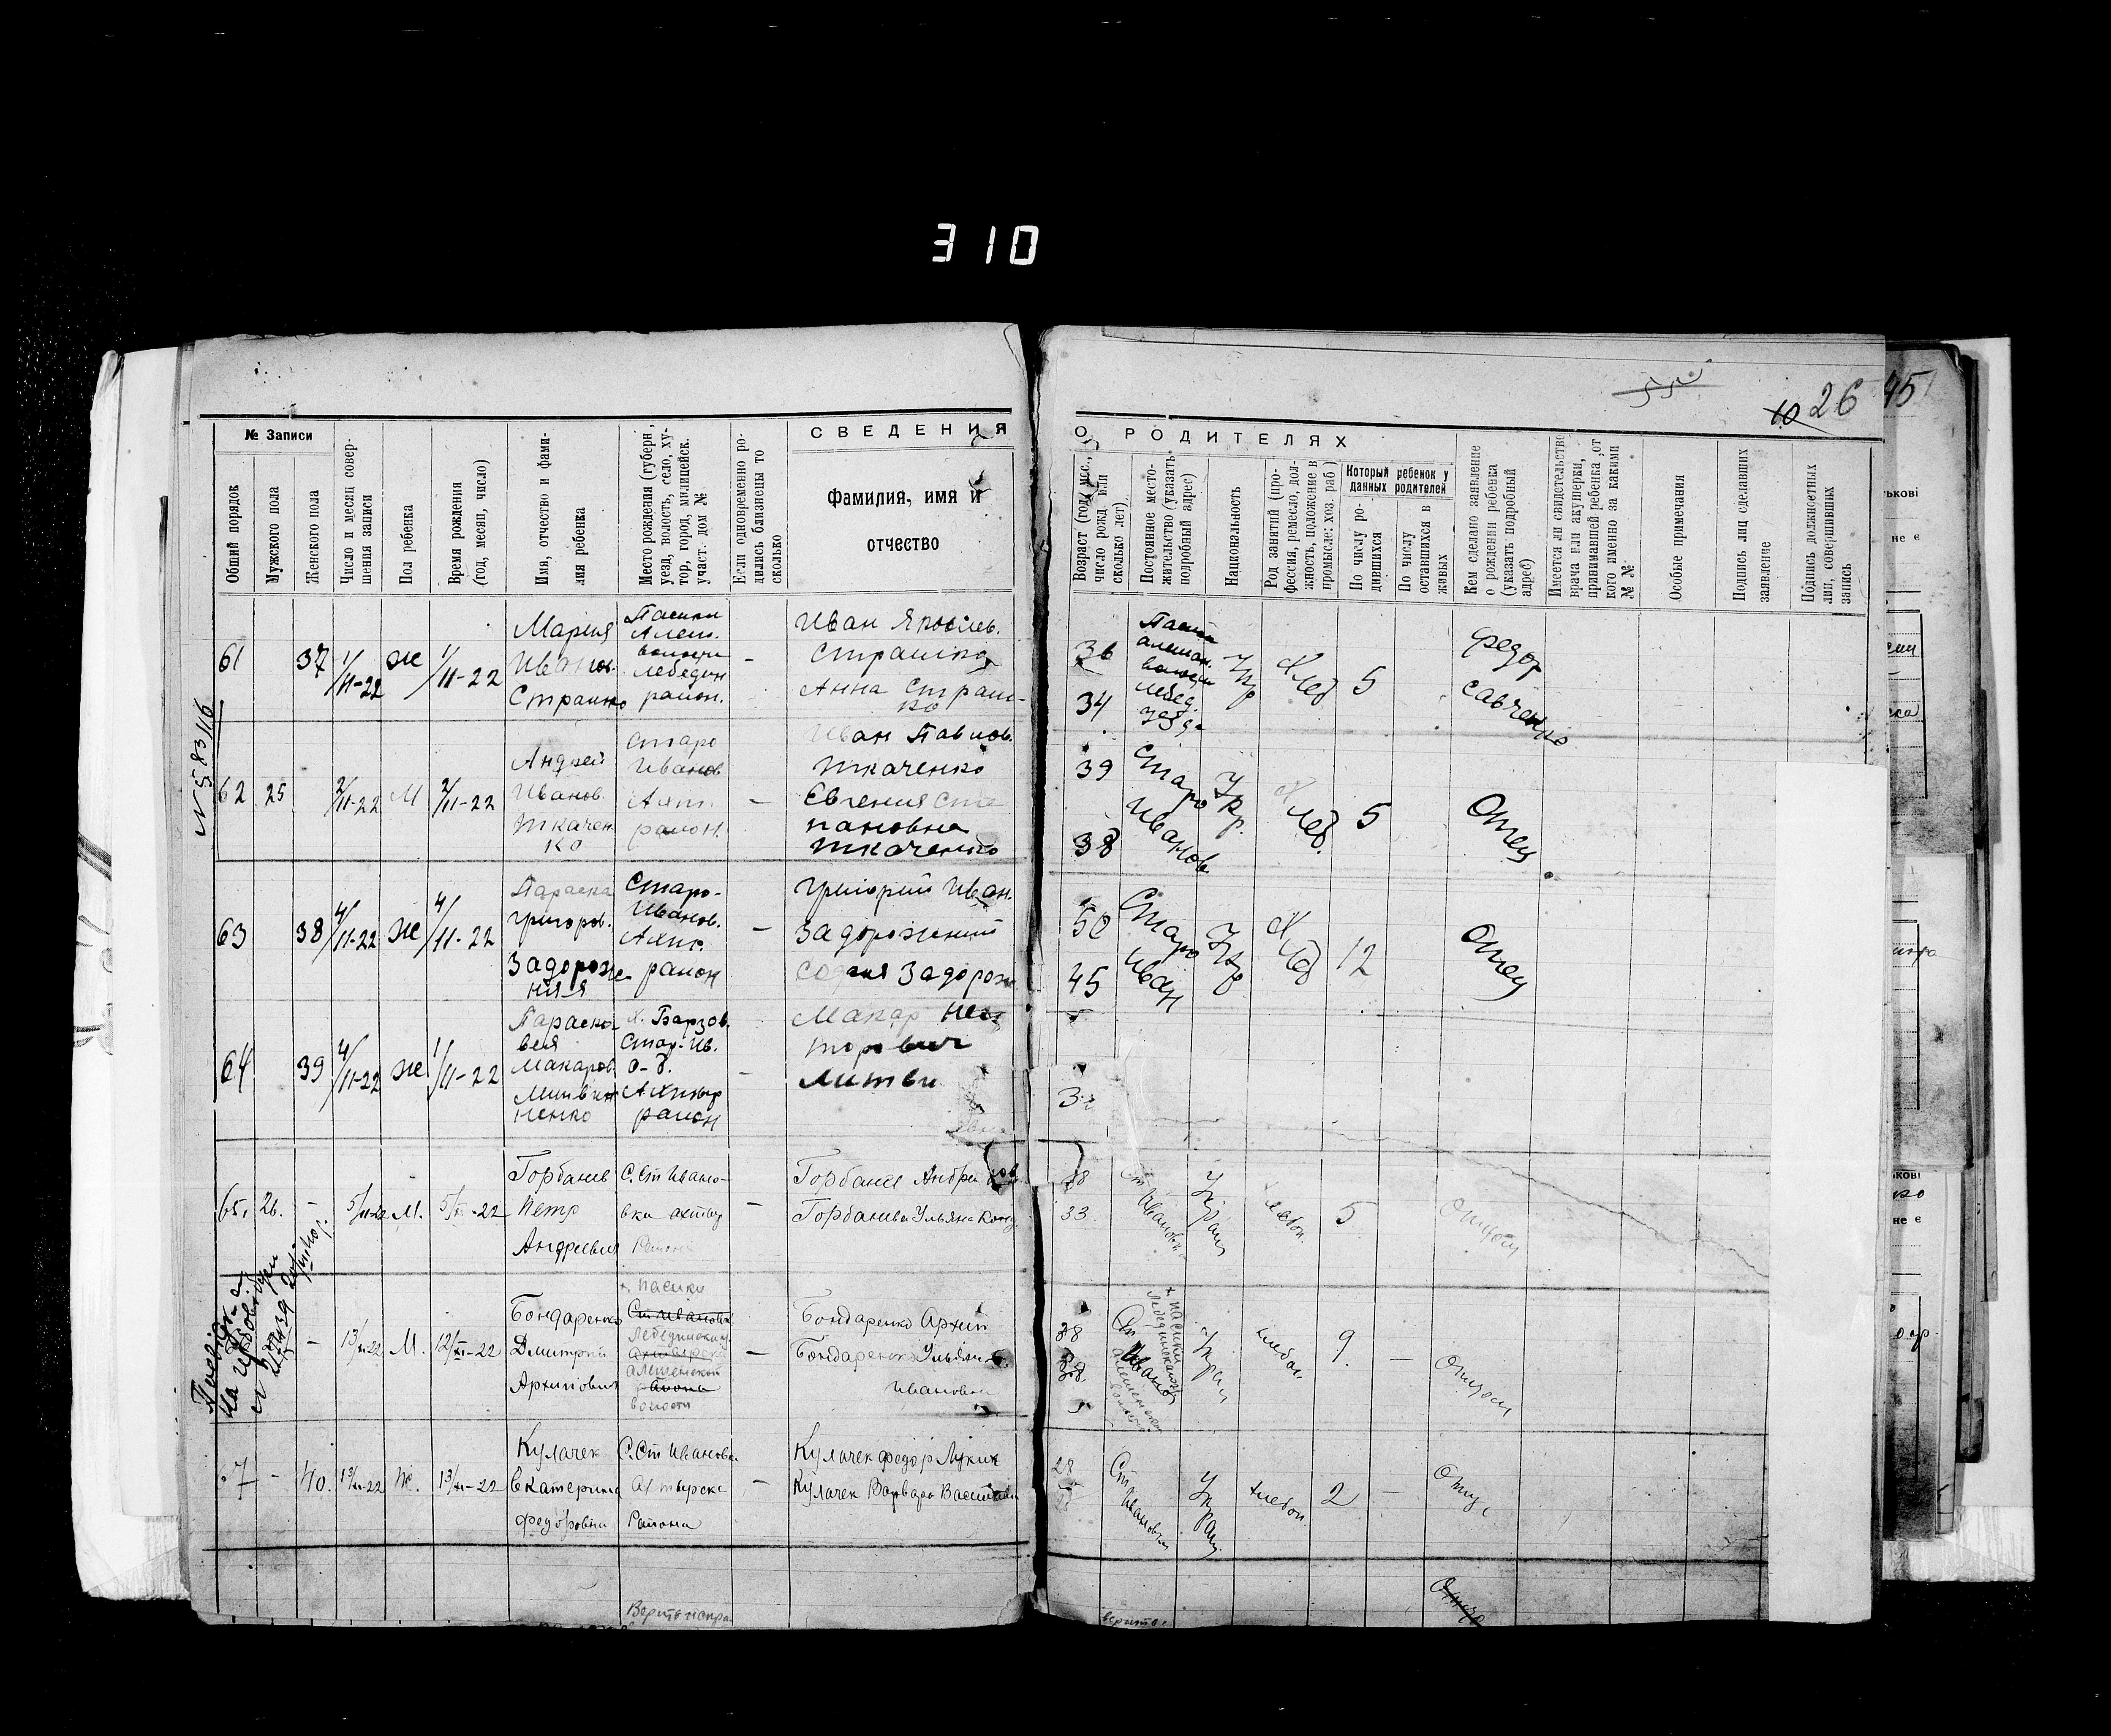 310
55
10 26 45
СВЕДЕНИЯ О РОДИТЕЛЯХ
№ Записи
Общий порядок
Мужского пола
Женского пола
Число и месяц совер-
шения записи
Пол ребенка
Время рождения
(год, месяц, число)
Имя, отчество и фами-
лия ребенка
Место рождения (губерн.,
уезд, волость, село, ху-
тор, город, милицейск.
участ. дом №
Если одновременно ро-
дились близнецы то
сколько
Фамилия, имя и
отчество
Возраст (год, мес.,
число рожд. или
сколько лет)
Постоянное место-
жительство (указать
подробный адрес)
Национальность
Род занятий (про-
фессия, ремесло, дол-
жность, положение в
промысле: хоз. раб)
Который ребенок у
данных родителей
По числу ро-
дившихся
По числу
оставшихся в
живых
Кем сделано заявление
о рождении ребенка
(указать подробный
адрес)
Имеется ли свидетельство
врача или акушерки,
принимавшей ребенка, от
кого именно за какими
№ №
Особые примечания
Подпись лиц сделавших
заявление
Подпись должностных
лиц, совершивших
запись
61
37
1/11-22
Ж
1/11-22
Мария
Иванов.
Страшко
Пасики
Алеш.
волости
Лебедин
район.
Иван Яковлев.
Страшко
Анна Страш-
ко
36
34
Укр
Хлеб
5
Федор
Савченко
N 583/16
62
25
2/11-22
М
2/11-22
Андрей
Иванов.
Ткачен
ко
Старо
Иванов
Ахт.
район.
Иван Павлов.
Ткаченко
Евгения Сте
пановна
Ткаченко
39
38
Старо
Иванов
Укр.
Хлеб.
5
Отец
63
38
4/11-22
Ж
4/11-22
Параска
Григоров.
Задорож-
няя
Старо-
Иванов.
Ахт.
район
Григорий Иван.
Задорожний
София Задорож
50
45
Старо
Иван
Укр
Хлеб
12
Отец
64
39
4/11-22
Ж
1/11-22
Параско-
вея
Макаров
Литвин
ненко
х. Барзов.
Стар-Ив.
о-б.
Ахтыр
район
Макар Нес
торович
Литви
65.
26.
–
5/XI-22
М.
5/XI-22
Горбанев
Петр
Андреевич
С. Ст Ивано-
вки ахтыр
Района
Горбанев Андрей
Горбанева Ульяна Конд
33
Ст Ивановка
Украин
хлебоп.
5
Отцом
N 27439
–
13/XI-22
М.
12/XI-22
Бондаренко
Дмитрий
Архипович
х. Пасики
Ст Ивановки
Лебединский
Ахтырский
Алешенской
района
волости
Бондаренко Архип
Бондаренко Ульяна
Ивановна
38
38
Украин
хлебоп.
9.
–
Отцом
67
–
40.
13/XI-22
Ж.
13/XI-22
Кулачек
Екатерина
Федоровна
С. Ст Ивановка
Ахтырске
Района
Кулачек Федор Лукич
Кулачек Варвара Васильев
28
Ст Ивановка
Украин
хлебоп.
2
–
Отец